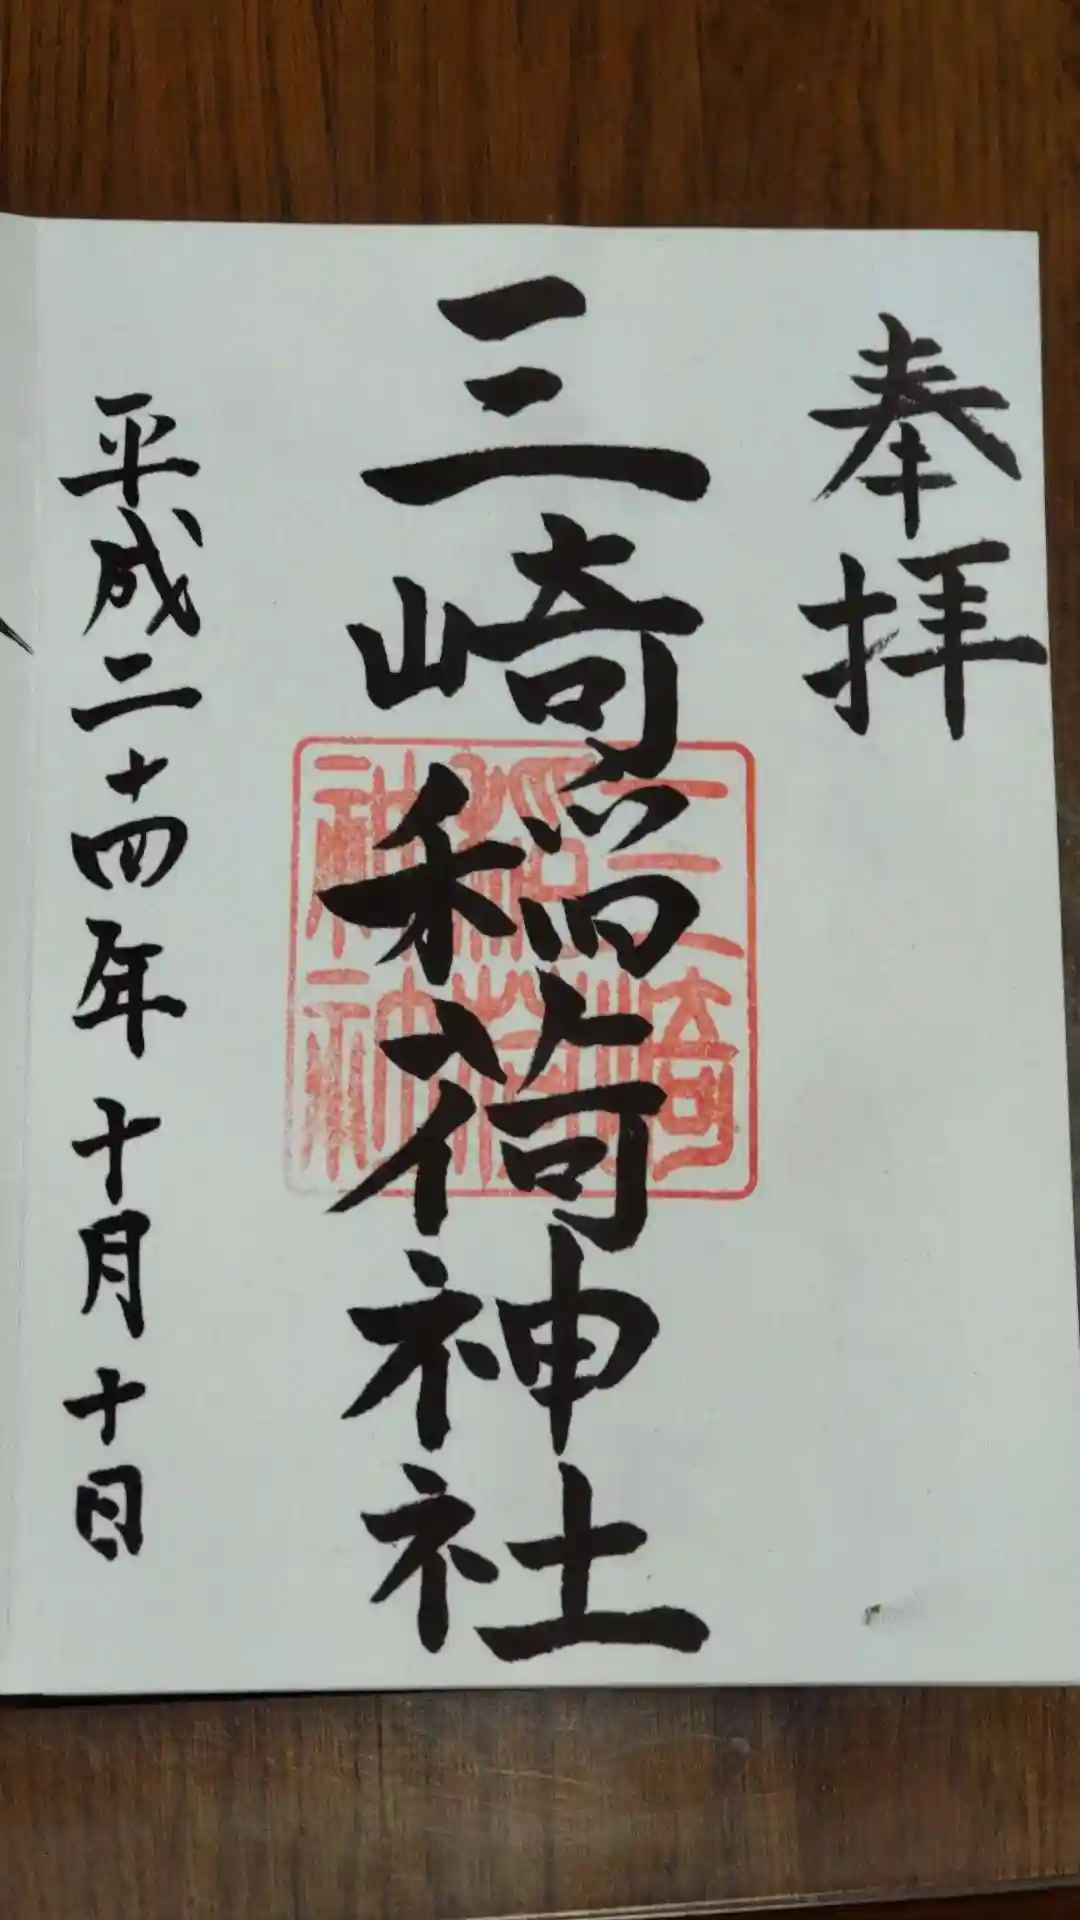 奉拝
三崎稲荷神社
三崎
稲荷
神社
平成二十四年十月十日